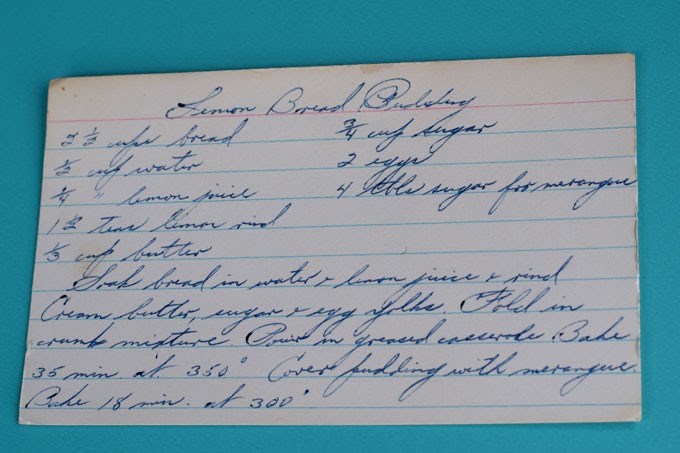 Lemon Bread Pudding
2 1/2 cups bread 3/4 cup sugar
1/2 cup water 2 eggs
1/4 " lemon juice 4 tbls sugar for merangue
1 1/2 teas lemon rind
1/3 cup butter
Soak bread in water & lemon juice & rind
Cream butter, sugar & egg yolks. Fold in
crumb mixture Pour in greased casserole Bake
35 min. at 350° Cover pudding with merangue.
Bake 18 min. at 300°